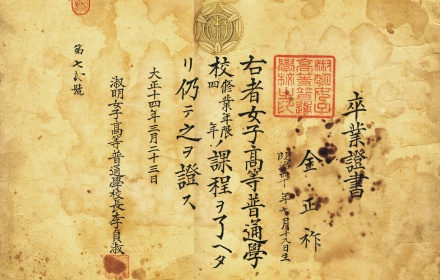 卒業證書
金正祚
明治四十年七月十九日生
右者女子高等普通學
校修業年限四年ノ課程ヲ了ヘタ
リ仍テ之ヲ證ス
大正十四年三月二十三日
淑明女子高等普通學校長李貞淑
第七貳號